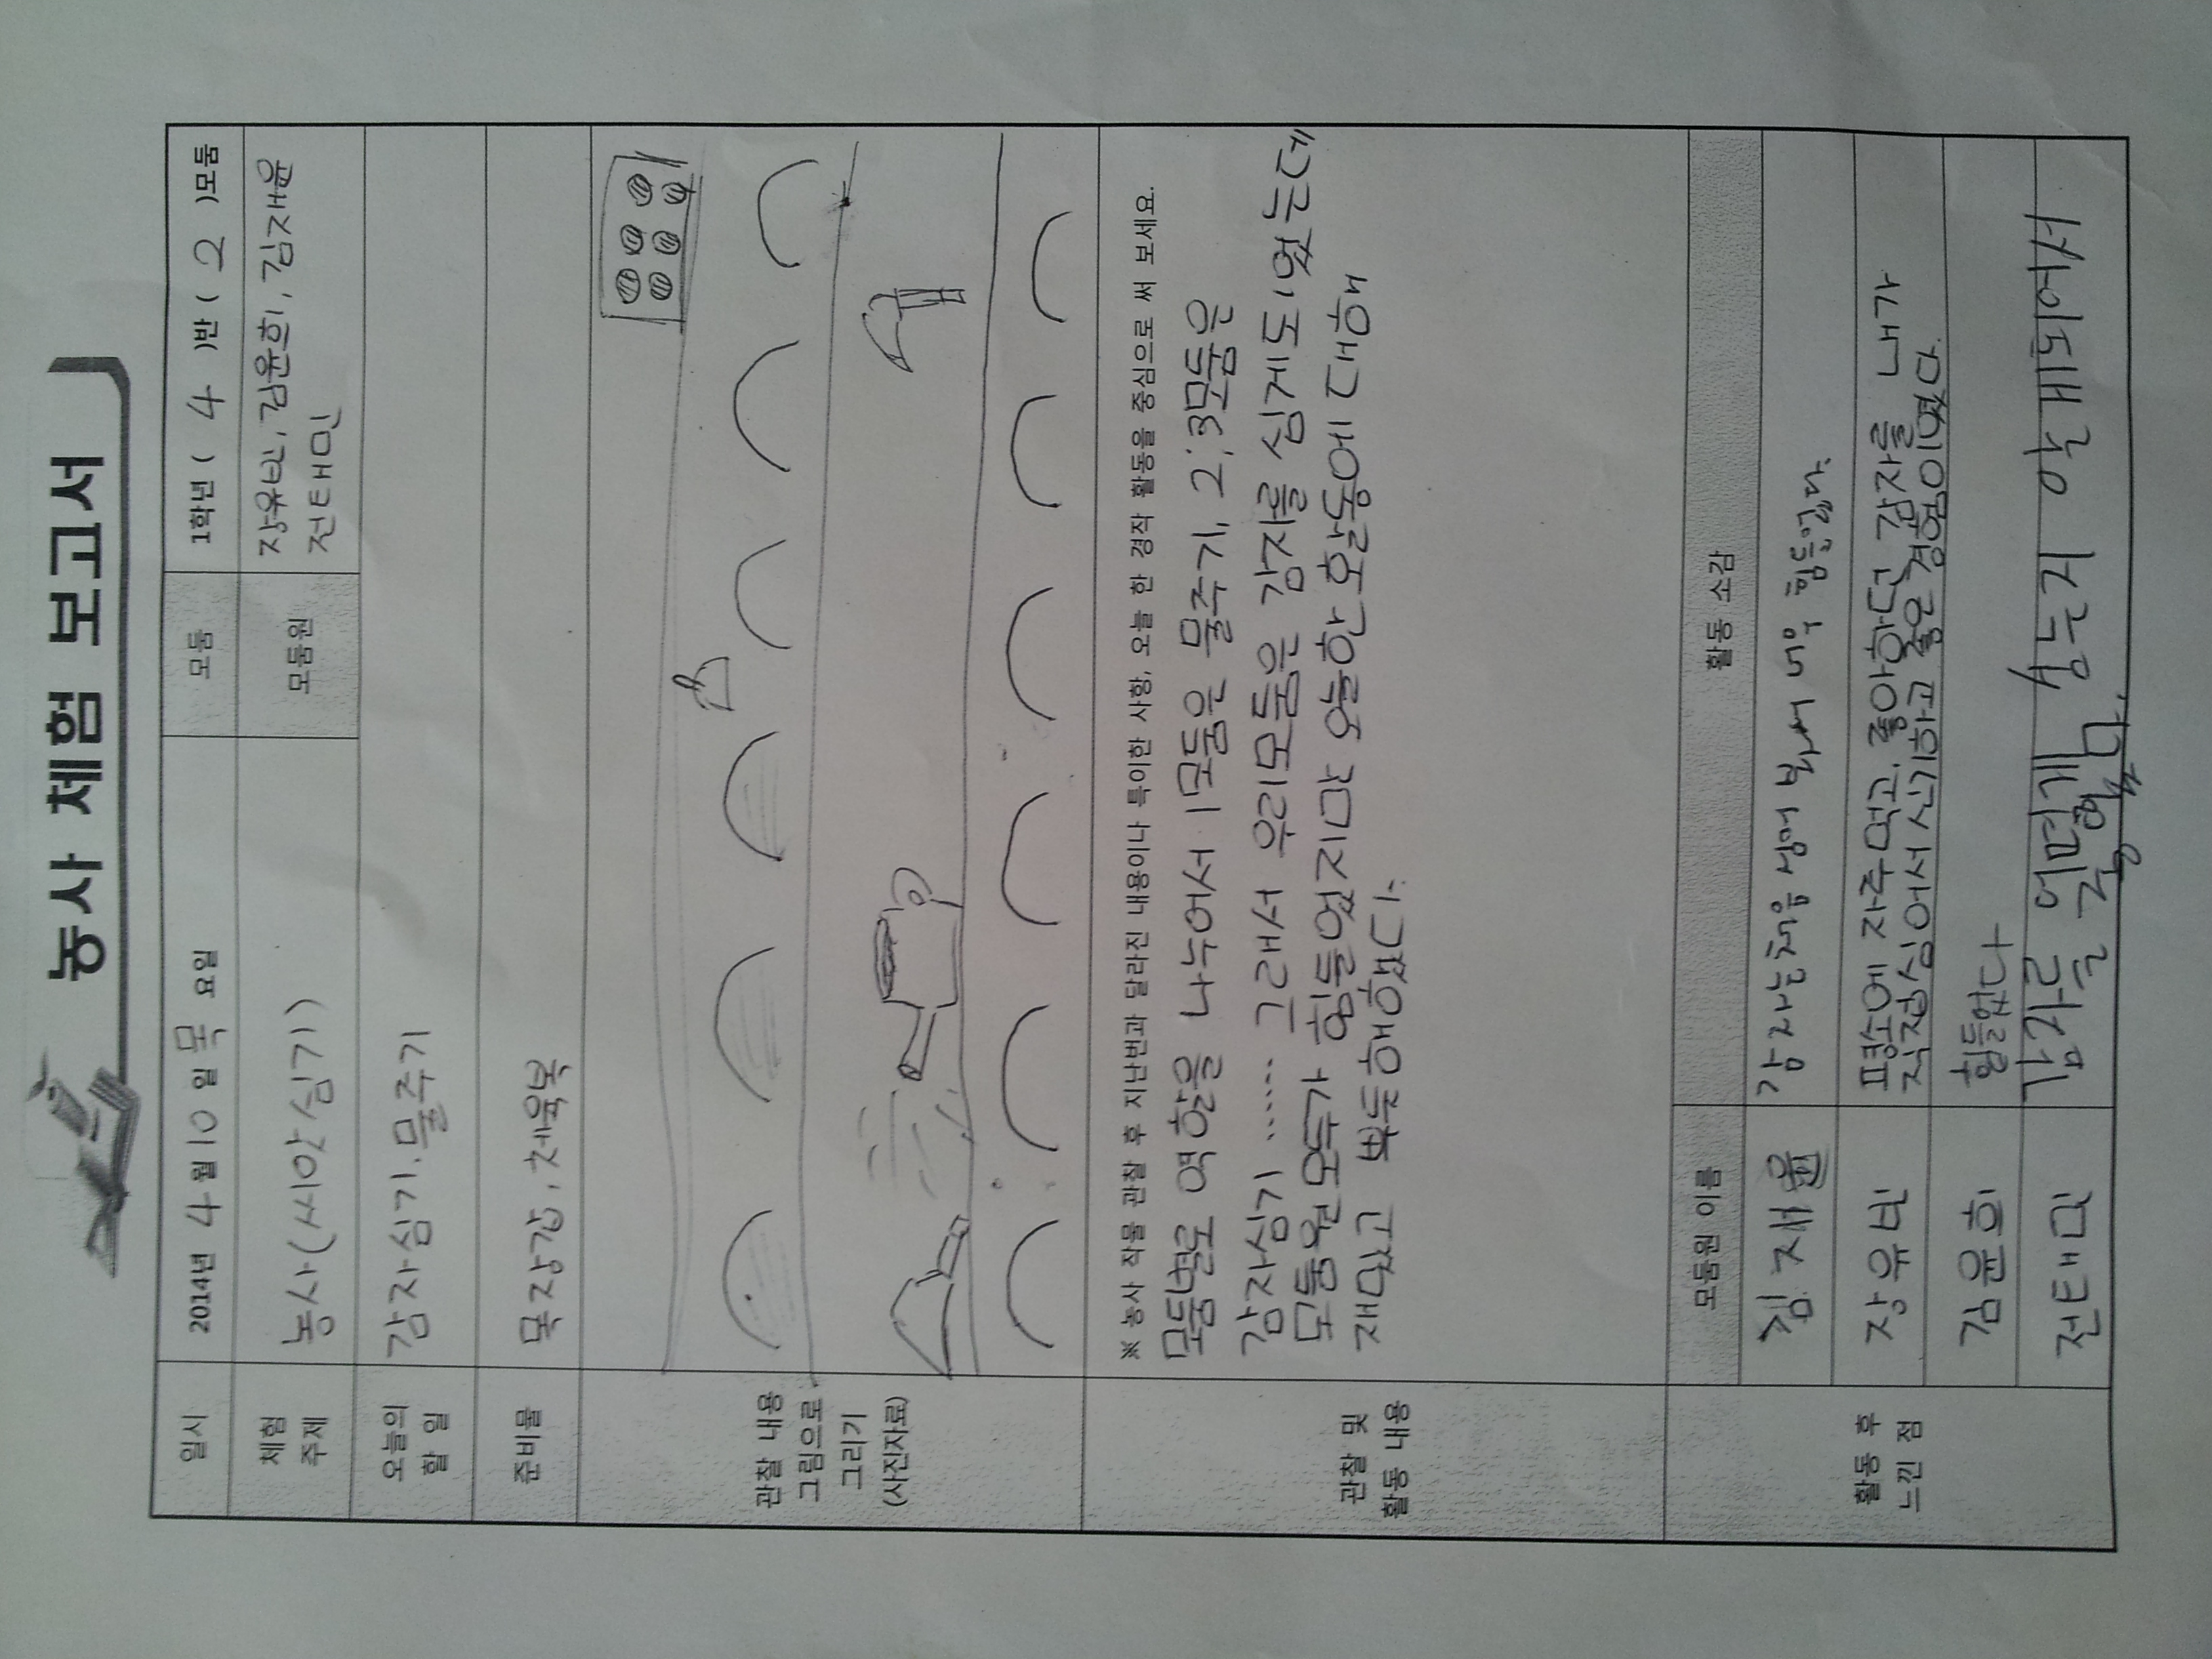 농사 체험 보고서
일시 2014년 4월 10일 목요일 모둠 1학년 ( 4 )반 ( 2 )모둠
체험 주제 농사(씨앗심기) 모둠원 장유빈, 김윤희, 김재윤
전태민
오늘의 할 일 감자심기. 물주기
준비물 목장갑, 체육복
관찰 내용
그림으로
그리기
(사진자료)
관찰 및
활동 내용
※ 농사 작물 관찰 후 지난번과 달라진 내용이나 특이한 사항, 오늘 한 경작 활동을 중심으로 써 보세요.
모둠별로 역할을 나누어서 1모둠은 물주기, 2,3모둠은
감자심기 ...... 그래서 우리모둠은 감자를 심게되었는데
모둠원 모두가 힘들었지만 오늘한 활동에 대해
재밌고 뿌듯해했다.
활동 후
느낀 점
모둠원 이름 활동 소감
김재윤 감자는 처음 심어 봐서 너무 힘들었다.
장유빈 평소에 자주먹고, 좋아하던 감자를 내가
직접심어서 신기하고 좋은 경험이었다.
김윤희 힘들었다
전태민 감자를 어떻게 심는지 알게되어서
좋았다.